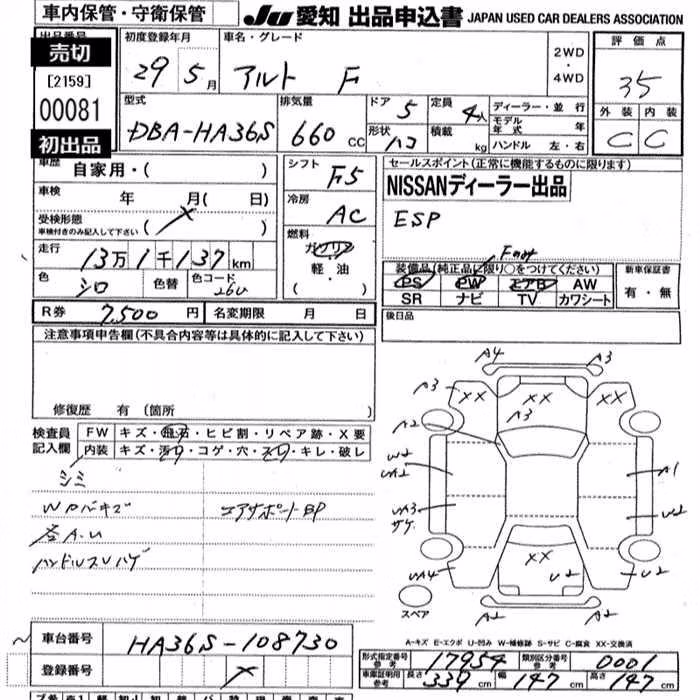 車内保管・守衛保管
JU 愛知 出品申込書 JAPAN USED CAR DEALERS ASSOCIATION
出品番号 初度登録年月 車名・グレード 2WD・4WD 評価点
売切 29年5月 アルト F 35
[2159]
00081
初出品
外装 内装
C C
型式 排気量 ドア 5 定員 4人 ディーラー・並行
DBA-HA36S 660cc 形状 ハコ 積載 kg モデル年式 年
ハンドル 左・右
車歴 自家用・( ) シフト F5 セールスポイント(正常に機能するものに限ります)
車検 年 月( 日) 冷房 AC NISSANディーラー出品
受検形態 車検付きのみ記入して下さい ( ) ESP
走行 13万1千137km 燃料 ガソリン・軽油・( )
Front
色 シロ 色替 色コード 26U
装備品(純正品に限り○をつけてください) 新車保証書
PS PW エアB AW 有・無
SR ナビ TV カワシート
R券 7,500円 名変期限 月 日 後日品
注意事項申告欄(不具合内容等は具体的に記入して下さい)
修復歴 有 (箇所 )
検査員記入欄 FW キズ・飛石・ヒビ割・リペア跡・X要
内装 キズ・汚れ・コゲ・穴・スレ・キレ・破レ
シミ
Wロバキズ エアサポートBP
各A.U
ハンドルスレハゲ
A4 A3
A3 XX XX
A3
A2
W2
UA2 A1
UA3 W2
サケ
XX
UA4 U2 U2
スペア A2 A2
A-キズ E-エクボ U-凹み W-補修跡 S-サビ C-腐食 XX-交換済
車台番号 HA36S-108730
登録番号
形式指定番号 参考 17954 類別区分番号 参考 0001
車庫証明用 参考 長さ 339cm 幅 147cm 高さ 147cm